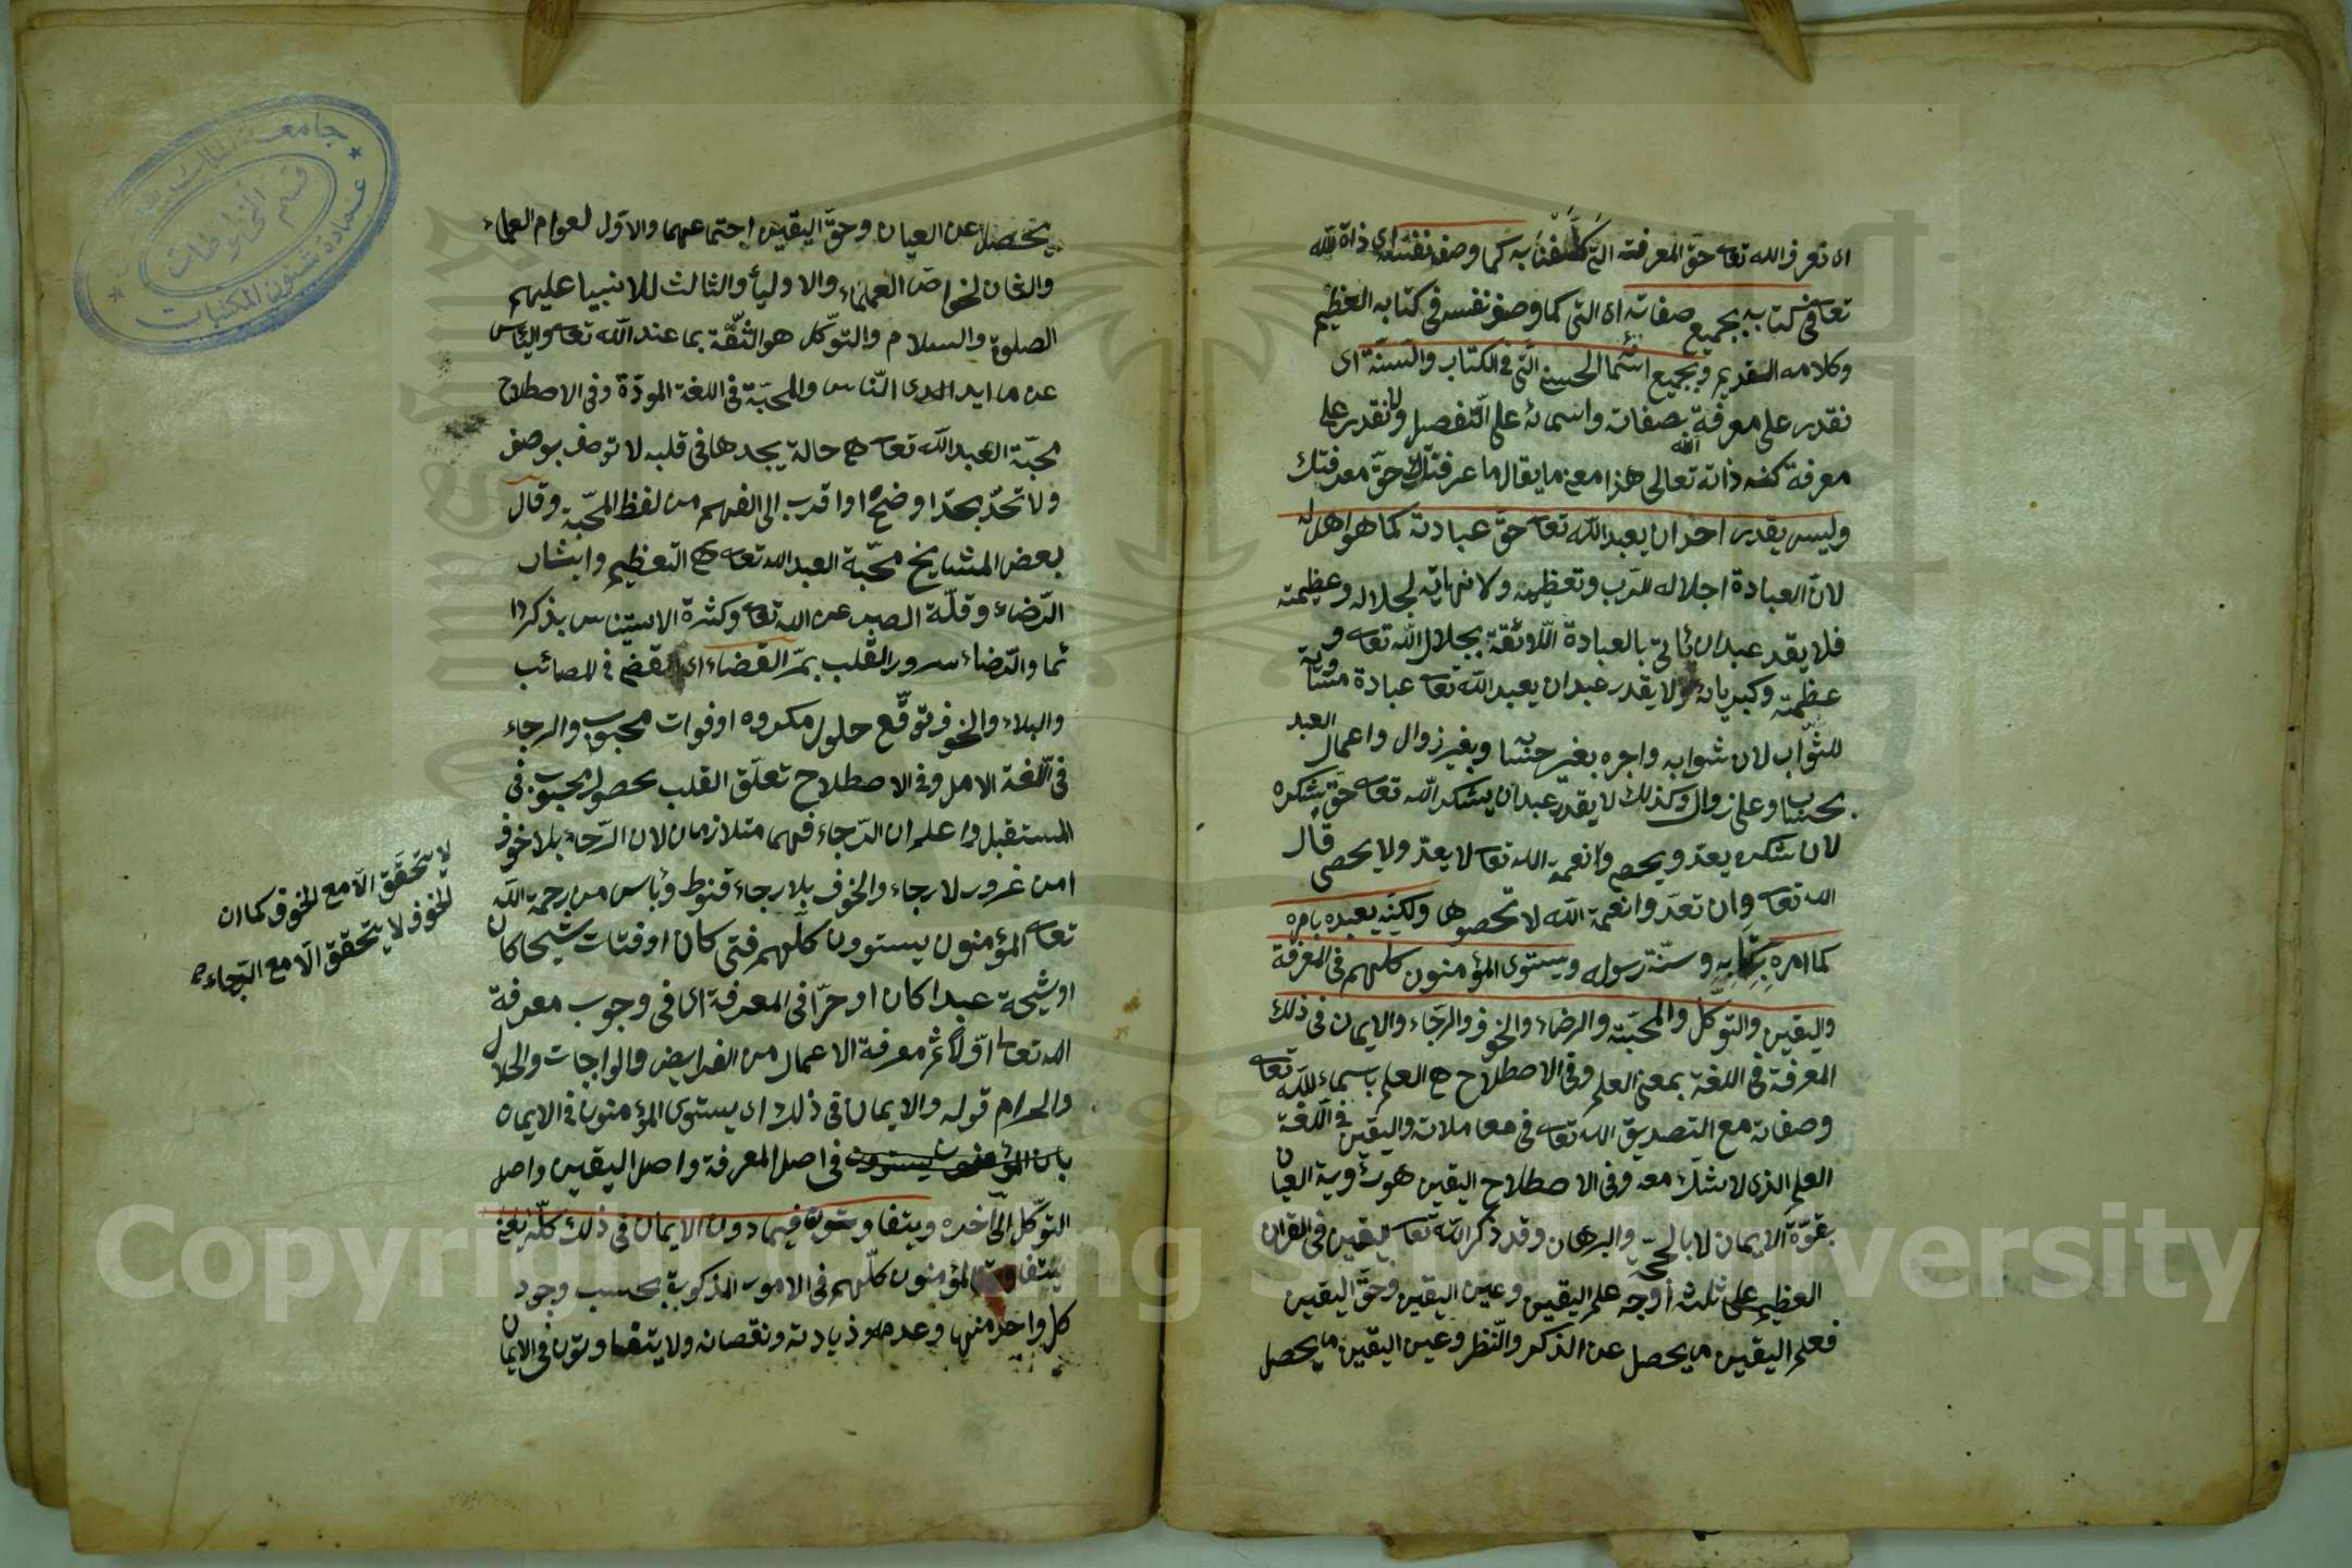 اى نعرف الله تعا حق المعرفته التى كلفنا به كما وصف نفسه اى ذاة لله
تعا فى كتابه بجميع صفاته اى التى كما وصف نفسه فى كتابه العظيم
وكلامه القديم وبجميع اسمائه الحسنى التى فى الكتاب والسنة اى
نقدر على معرفة الله بصفاته واسمائه على التفصيل ولا نقدر على
معرفة كنه ذاته تعالى هذا معنى ما يقال ما عرفناك حق معرفتك
وليس يقدر احد ان يعبد الله تعا حق عبادته كما هو اهل له
لان العبادة اجلاله للرب وتعظيمه ولا نهاية لجلاله وعظمته
فلا يقد عبد ان ياتى بالعبادة اللائقة بجلال الله تعا و
عظمته وكبريائه ولا يقدر عبد ان يعبد الله تعا عبادة متساوية
للثواب لان ثوابه واجره بغير حساب وبغير زوال واعمال العبد
بحساب وعلى زوال وكذلك لا يقدر عبد ان يشكر الله تعا حق شكره
لان شكره يعد ويحصى وانعمة الله تعا لا يعد ولا يحصى قال
الله تعا وان تعدوا نعمة الله لا تحصوها ولكنه يعبده بامره
كما امره بكتابه وسنة رسوله ويستوى المؤمنون كلهم فى المعرفة
واليقين والتوكل والمحبته والرضاء والخوف والرجاء والايمان فى ذلك
المعرفة فى اللغة بمعنى العلم وفى الاصطلاح هى العلم باسماء لله تعا
وصفاته مع التصديق الله تعا فى معاملاته واليقين فى اللغة
العلم الذى لا شك معه وفى الاصطلاح اليقين هو رؤية العيان
بقوة الايمان لا بالحجة والبرهان وقد ذكر الله تعا اليقين فى القران
العظيم على ثلثه أوجه علم اليقين وعين اليقين وحق اليقين
فعلم اليقين ما يحصل عن الذكر والنظر وعين اليقين ما يحصل
يحصل عن العيان وحق اليقين اجتماعهما والاول لعوام العلماء
والثان لخواص العلماء والاوليأ والثالث للانبيا عليهم
الصلوة والسلام والتوكل هو الثقة بما عند الله تعا والياس
عن ما ايد الدى الناس والمحبة فى اللغة المودة وفى الاصطلاح
محبة العبد الله تعا هى حالة يجدها فى قلبه لا توصف بوصف
ولا تحد بحد اوضح او اقرب الى الفهم من لفظ المحبة وقال
بعض المشايخ محبة العبد الله تعا هى التعظيم وايثار
الرضاء وقلة الصبر عن الله تعا وكثرة الاستيناس بذكر دا
ئما والرضاء سرور القلب بمر القضاء اى المقضى فى المصائب
والبلاء والخوف توقع حلول مكروه او فوات محبوب والرجاء
فى اللغة الامل وفى الاصطلاح تعلق القلب بحصول محبوب فى
المستقبل واعلم ان الرجاء فهما متلازمان لان الرجاء بلا خوف
امن غرور لا رجاء والخوف بلا رجاء قنوط ويأس من رحمة الله
تعا المؤمنون يستوون كلهم فتى كان او فتات شيخا كان
او شيخة عبدا كان او حرا فى المعرفة اى فى وجوب معرفة
الله تعا اولا ثم معرفة الاعمال من الفرايض والواجبات والحلال
والحرام قوله والايمان فى ذلك اى يستوى المؤمنون فى الايمان
بان المؤمنون يستوون فى اصل المعرفة واصل اليقين واصل
التوكل الى آخره ويتفاوتون فيما دون الايمان فى ذلك كله يعنى
يتفاوت المؤمنون كلهم فى الامور المذكورة بحسب وجود
كل واحد منها وعدمه وزيادته ونقصانه ولا يتفاوتون فى الايمان
لا يتحقق الا مع الخوف كما ان
الخوف لا يتحقق الا مع الرجاء
جامعة الملك سعود
عمادة شئون المكتبات
قسم المخطوطات
Copyright © King Saud University